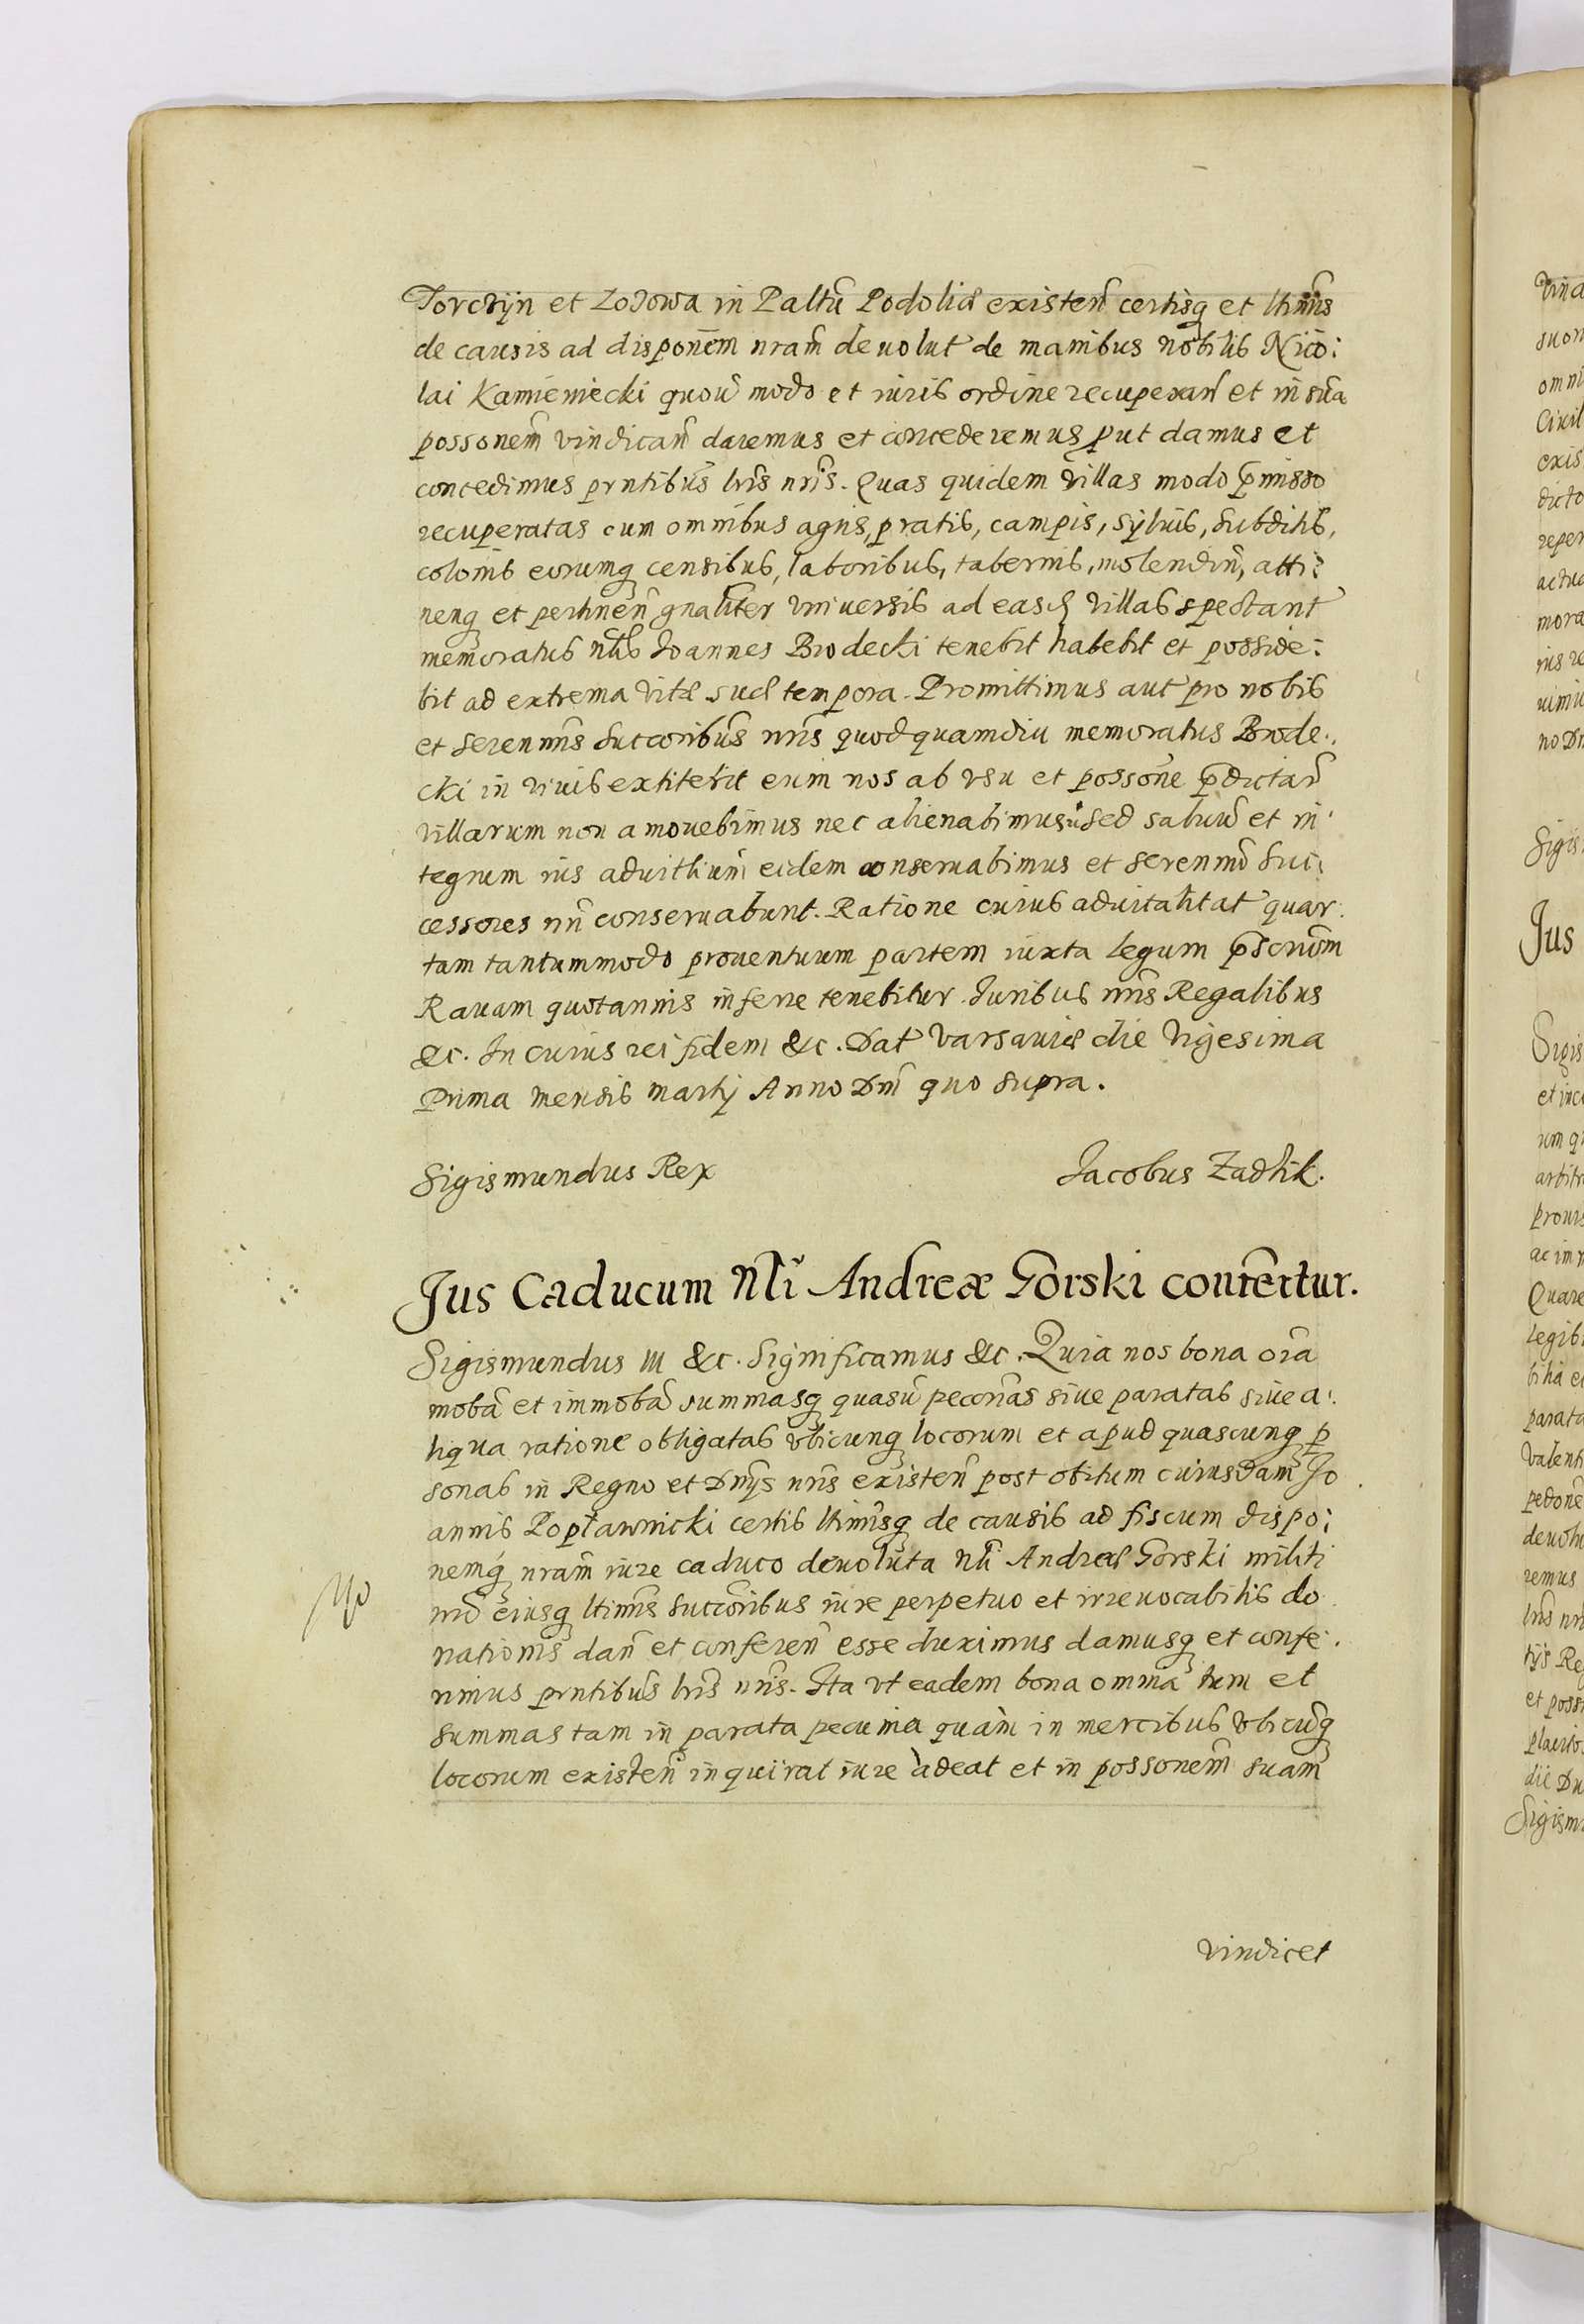 Torczÿn et Zozowa in Paltũ Podoliæ existeñ certisq et ltim̃is
de causis ad disponem̃ nram̃ deuolut de manibus nobilis Nico:
lai Kamieniecki quouis modo et iuris ordine recuperañ et in sua
possonem̃ vindicañ daremus et concederemus put damus et
concedimus prntibus̃ lris̃ nris̃. Quas quidem villas modo p̃misso
recuperatas cum omnibus agris, pratis, campis, sÿluis, subditis,
colonis eorumq censibus, laboribus, tabernis, molendiñ, atti:
nenq et pertineñ gnaliter̃ vniuersis ad easd villas spectant
memoratus nlis̃ Joannes Brodecki tenebit habebit et posside:
bit ad extrema vitæ suæ tempora. Promittimus aut pro nobis
et serenmis̃ succoribus̃ nris̃ quod quamdiu memoratus Brode:
cki in viuis extiterit eum nos ab vsu et possone p̃dictar̃
villarum non amouebimus nec alienabimus sed saluũ et in
tegrum ius aduitlium̃ eidem conseruabimus et serenmõ suc:
cessores nrĩ conseruabunt. Ratione cuius aduitalitat quar
tam tantummodo prouentuum partem iuxta legum p̃scriom̃
Rauam quotannis inferre tenebitur. Juribus nris̃ Regalibus
&c. In cuius rei fidem &c. Dat Varsauiæ die vigesima
prima mensis martij Anno Dnĩ quo supra.
Sigismundus Rex Jacobus Zadzik.
Jus Caducum Nlĩ Andreæ Gorski confertur.
Sigismundus III &c. Significamus &c. Quia nos bona oiã
mobã et immobã summasq quasuĩs pecorias̃ siue paratas siue a:
liqua ratione obligatas vbicunq locorum et apud quascunq p
sonas in Regno et Dnijs̃ nris̃ existeñ post obitum cuiusdam Jo
annis Popławnicki certis ltimisq̃ de causis ad fiscum dispo:
nemq̃ nram̃ iure caduco deuoluta Nlĩ Andreæ Gorski militi
nrõ eiusq ltimis̃ succoribus̃ iure perpetuo et irreuocabilis do
nationis dañ et confereñ esse duximus damusq et confe:
rimus prntibus̃ lris̃ nris̃. Ita vt eadem bona omnia tum et
summas tam in parata pecunia quàm in mercibus vbicuq̃
locorum existeñ inquirat iure adeat et in possonem̃ suam
vindicet